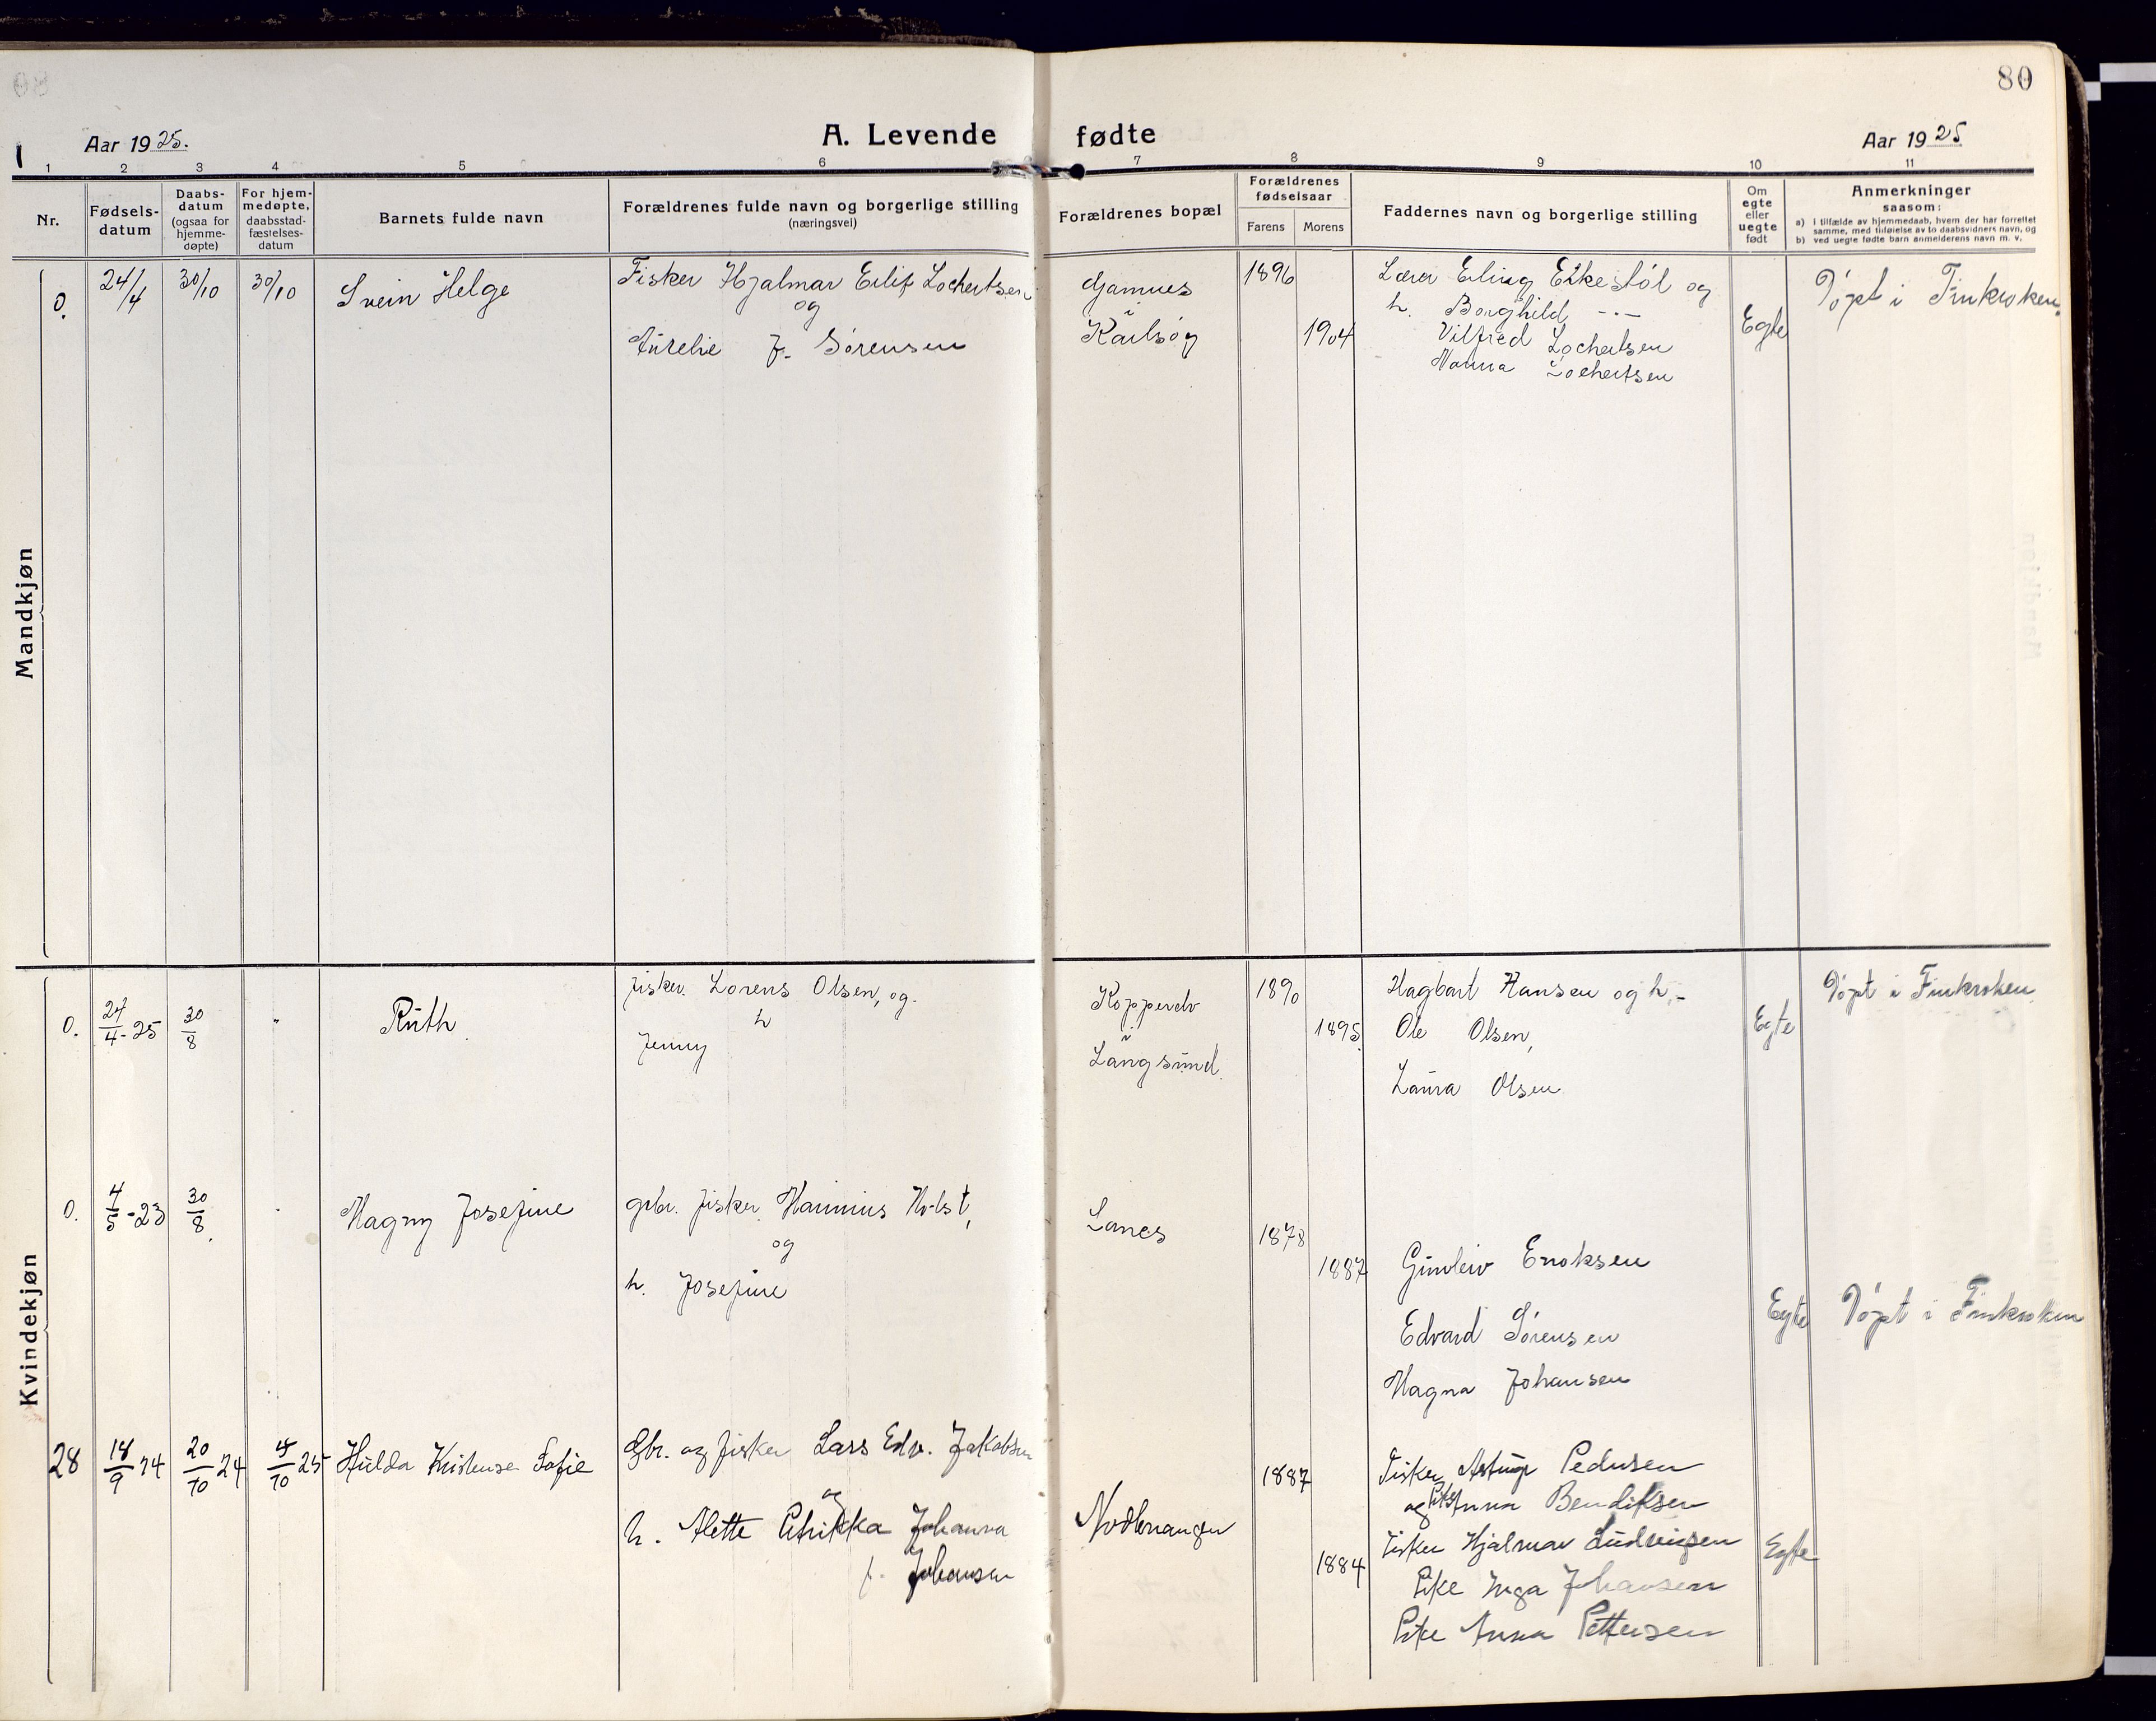 80
Aar 1925.
A. Levende fødte
Aar 1925
1 2 3 4 5 6 7 8 9 10 11
Nr.
Fødsels-
datum
Daabs-
datum
(ogsaa for
hjemme-
døpte)
For hjem-
medøpte,
daabsstad-
fæstelses-
datum
Barnets fulde navn
Forældrenes fulde navn og borgerlige stilling
(næringsvei)
Forældrenes bopæl
Forældrenes
fødselsaar
Farens Morens
Faddernes navn og borgerlige stilling
Om
egte
eller
uegte
født
Anmerkninger
saasom:
a) i tilfælde av hjemmedaab, hvem der har forrettet
samme, med tilføielse av to daabsvidners navn, og
b) ved uegte fødte barn anmelderens navn m. v.
Mandkjøn
0. 24/4 30/10 30/10 Svein Helge
Fisker Hjalmar Eilif Lochertsen
og
Aurelie f. Sørensen
Gamnes
i
Karlsøy
1896
1904
Lærer Erling Eikestøl og
h. Borghild -"-
Vilfred Lochertsen
Nanna Lochertsen
Egte
Døpt i Finkroken.
Kvindekjøn
0. 24/4-25 30/8 " Ruth
fisker Lorens Olsen, og.
h
Jenny
i
Langsund.
1890
1895.
Hagbart Hansen og h.-
Ole Olsen,
Laura Olsen
Egte
Døpt i Finkroken
0. 4/5-23 30/8. Magny Josefine
gbr. fisker Holst,
og
h. Josefine
Lanes
1878
1887
Enoksen
Edvard Sørensen
Magna Johansen
Egte
Døpt i Finkroken
28 18/9 24 20/10 24 4/10 25 Hulda Kristense Sofie
Gbr. og fisker Lars Edv. Jakobsen
og
h. Alette Johanna
f. Johansen
1887
1884
Fisker Pedersen
og Pike Anna Bendiksen
Fisker Hjalmar Ludvigsen
Pike Inga Johansen
Pike Anna Pettersen
Egte